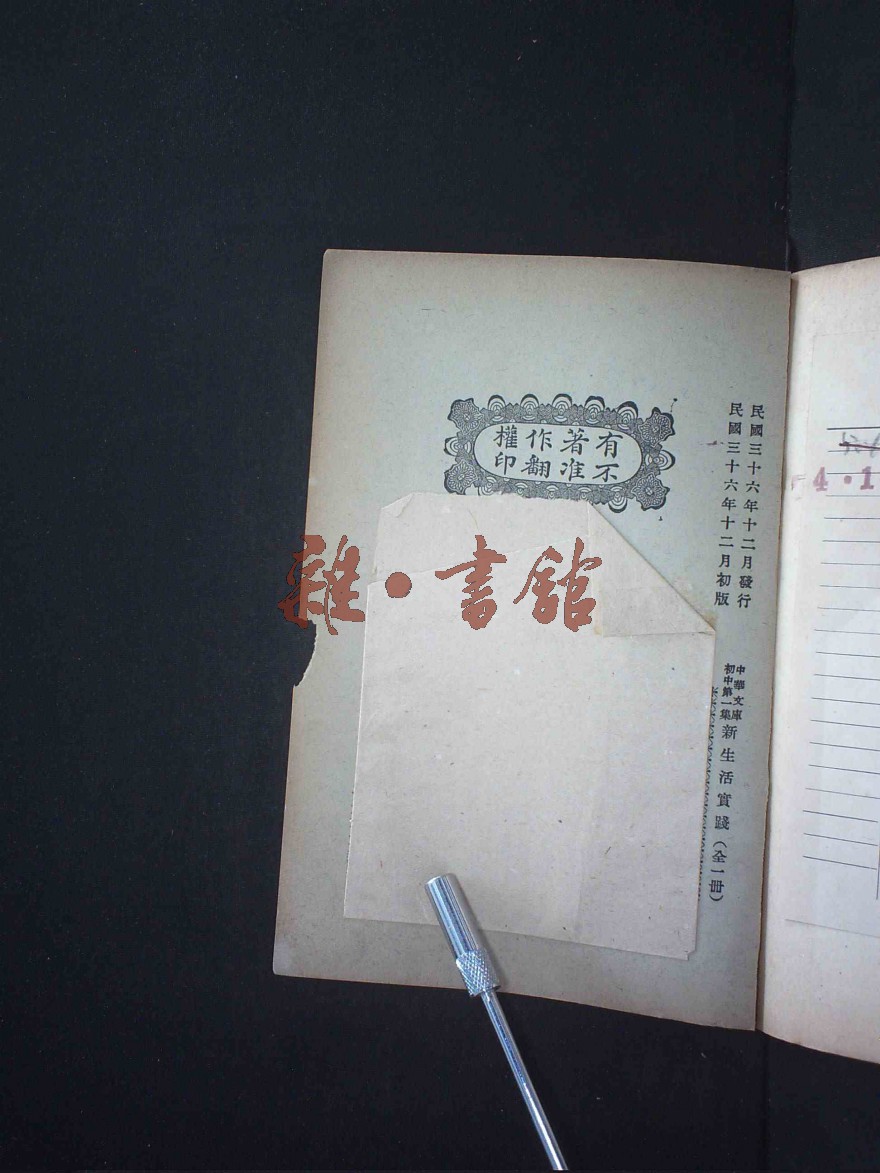 民國三十六年十二月發行
民國三十六年十二月初版
中華文庫
初中第一集
新生活實踐（全一冊）
有著作權
不准翻印
雜·書館
4·1